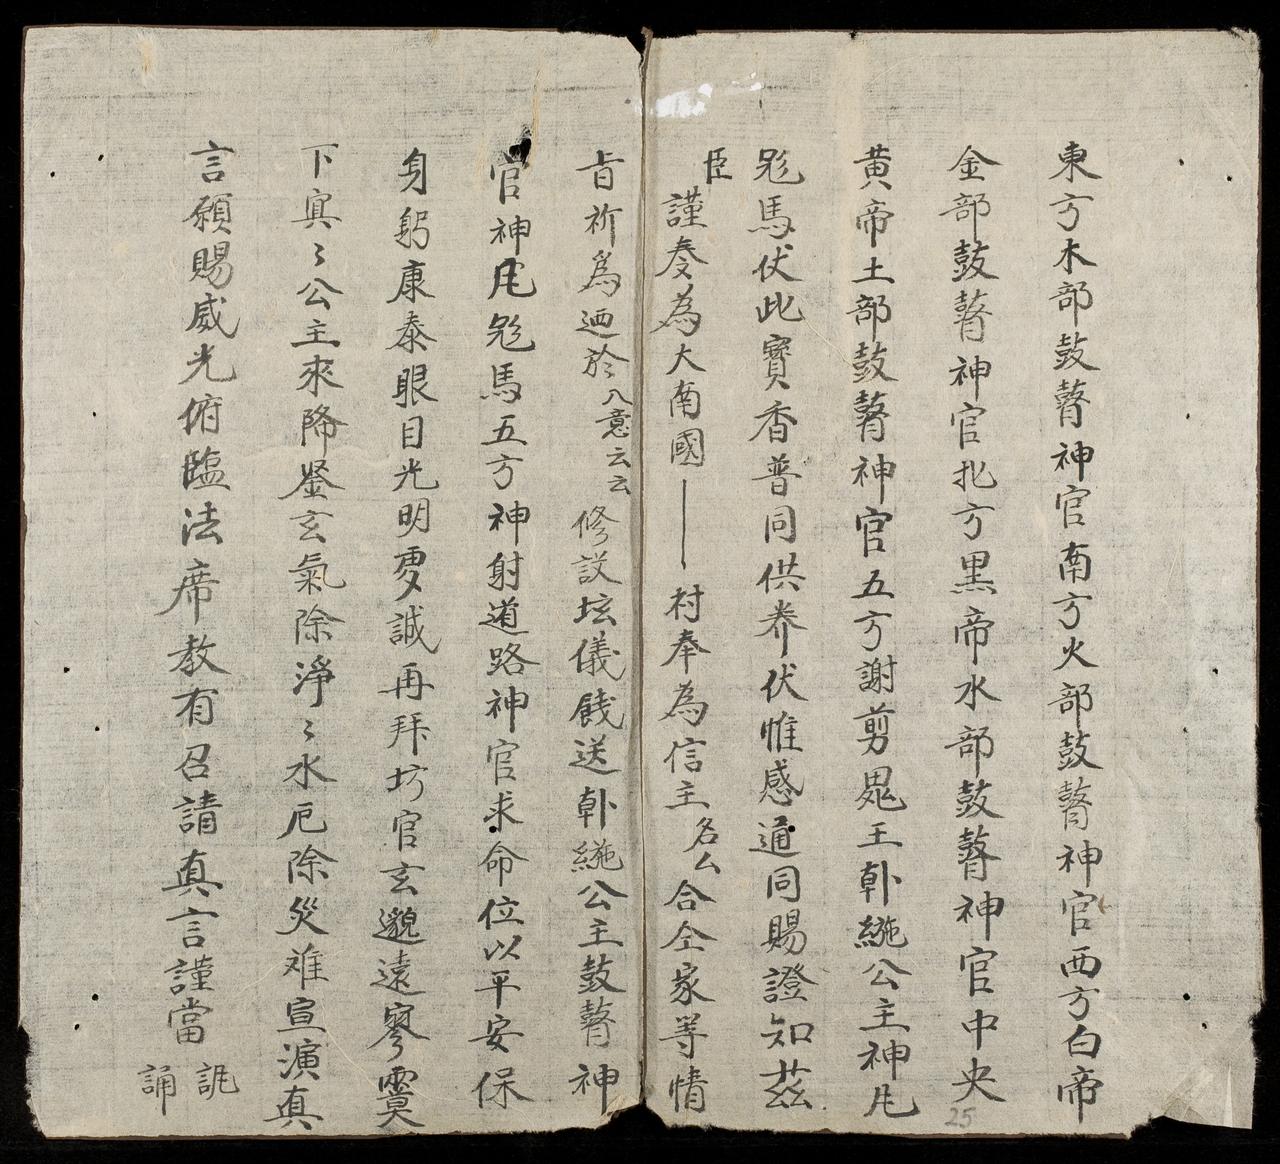 東方木部鼓瞽神官南方火部鼓瞽神官西方白帝
金部鼓瞽神官北方黑帝水部鼓瞽神官中央
黄帝土部鼓瞽神官五方謝剪鬼王𠦝絁公主神𠂰
馬伏此寳香普同供养伏惟感通同賜證知茲
臣
謹奏為大南國——村奉為信主名厶合仝家等情
旨祈爲迺於入意云云修設坛儀餞送公主鼓瞽神
官神馬五方神射道路神官求命位以平安保
身躬康泰眼目光明誠再拜坊官玄邈遠寥寞
下冥〻公主來降鉴玄氣除淨〻水厄除災难宣演真
言願賜威光俯臨法席教有召請真言謹當
誦